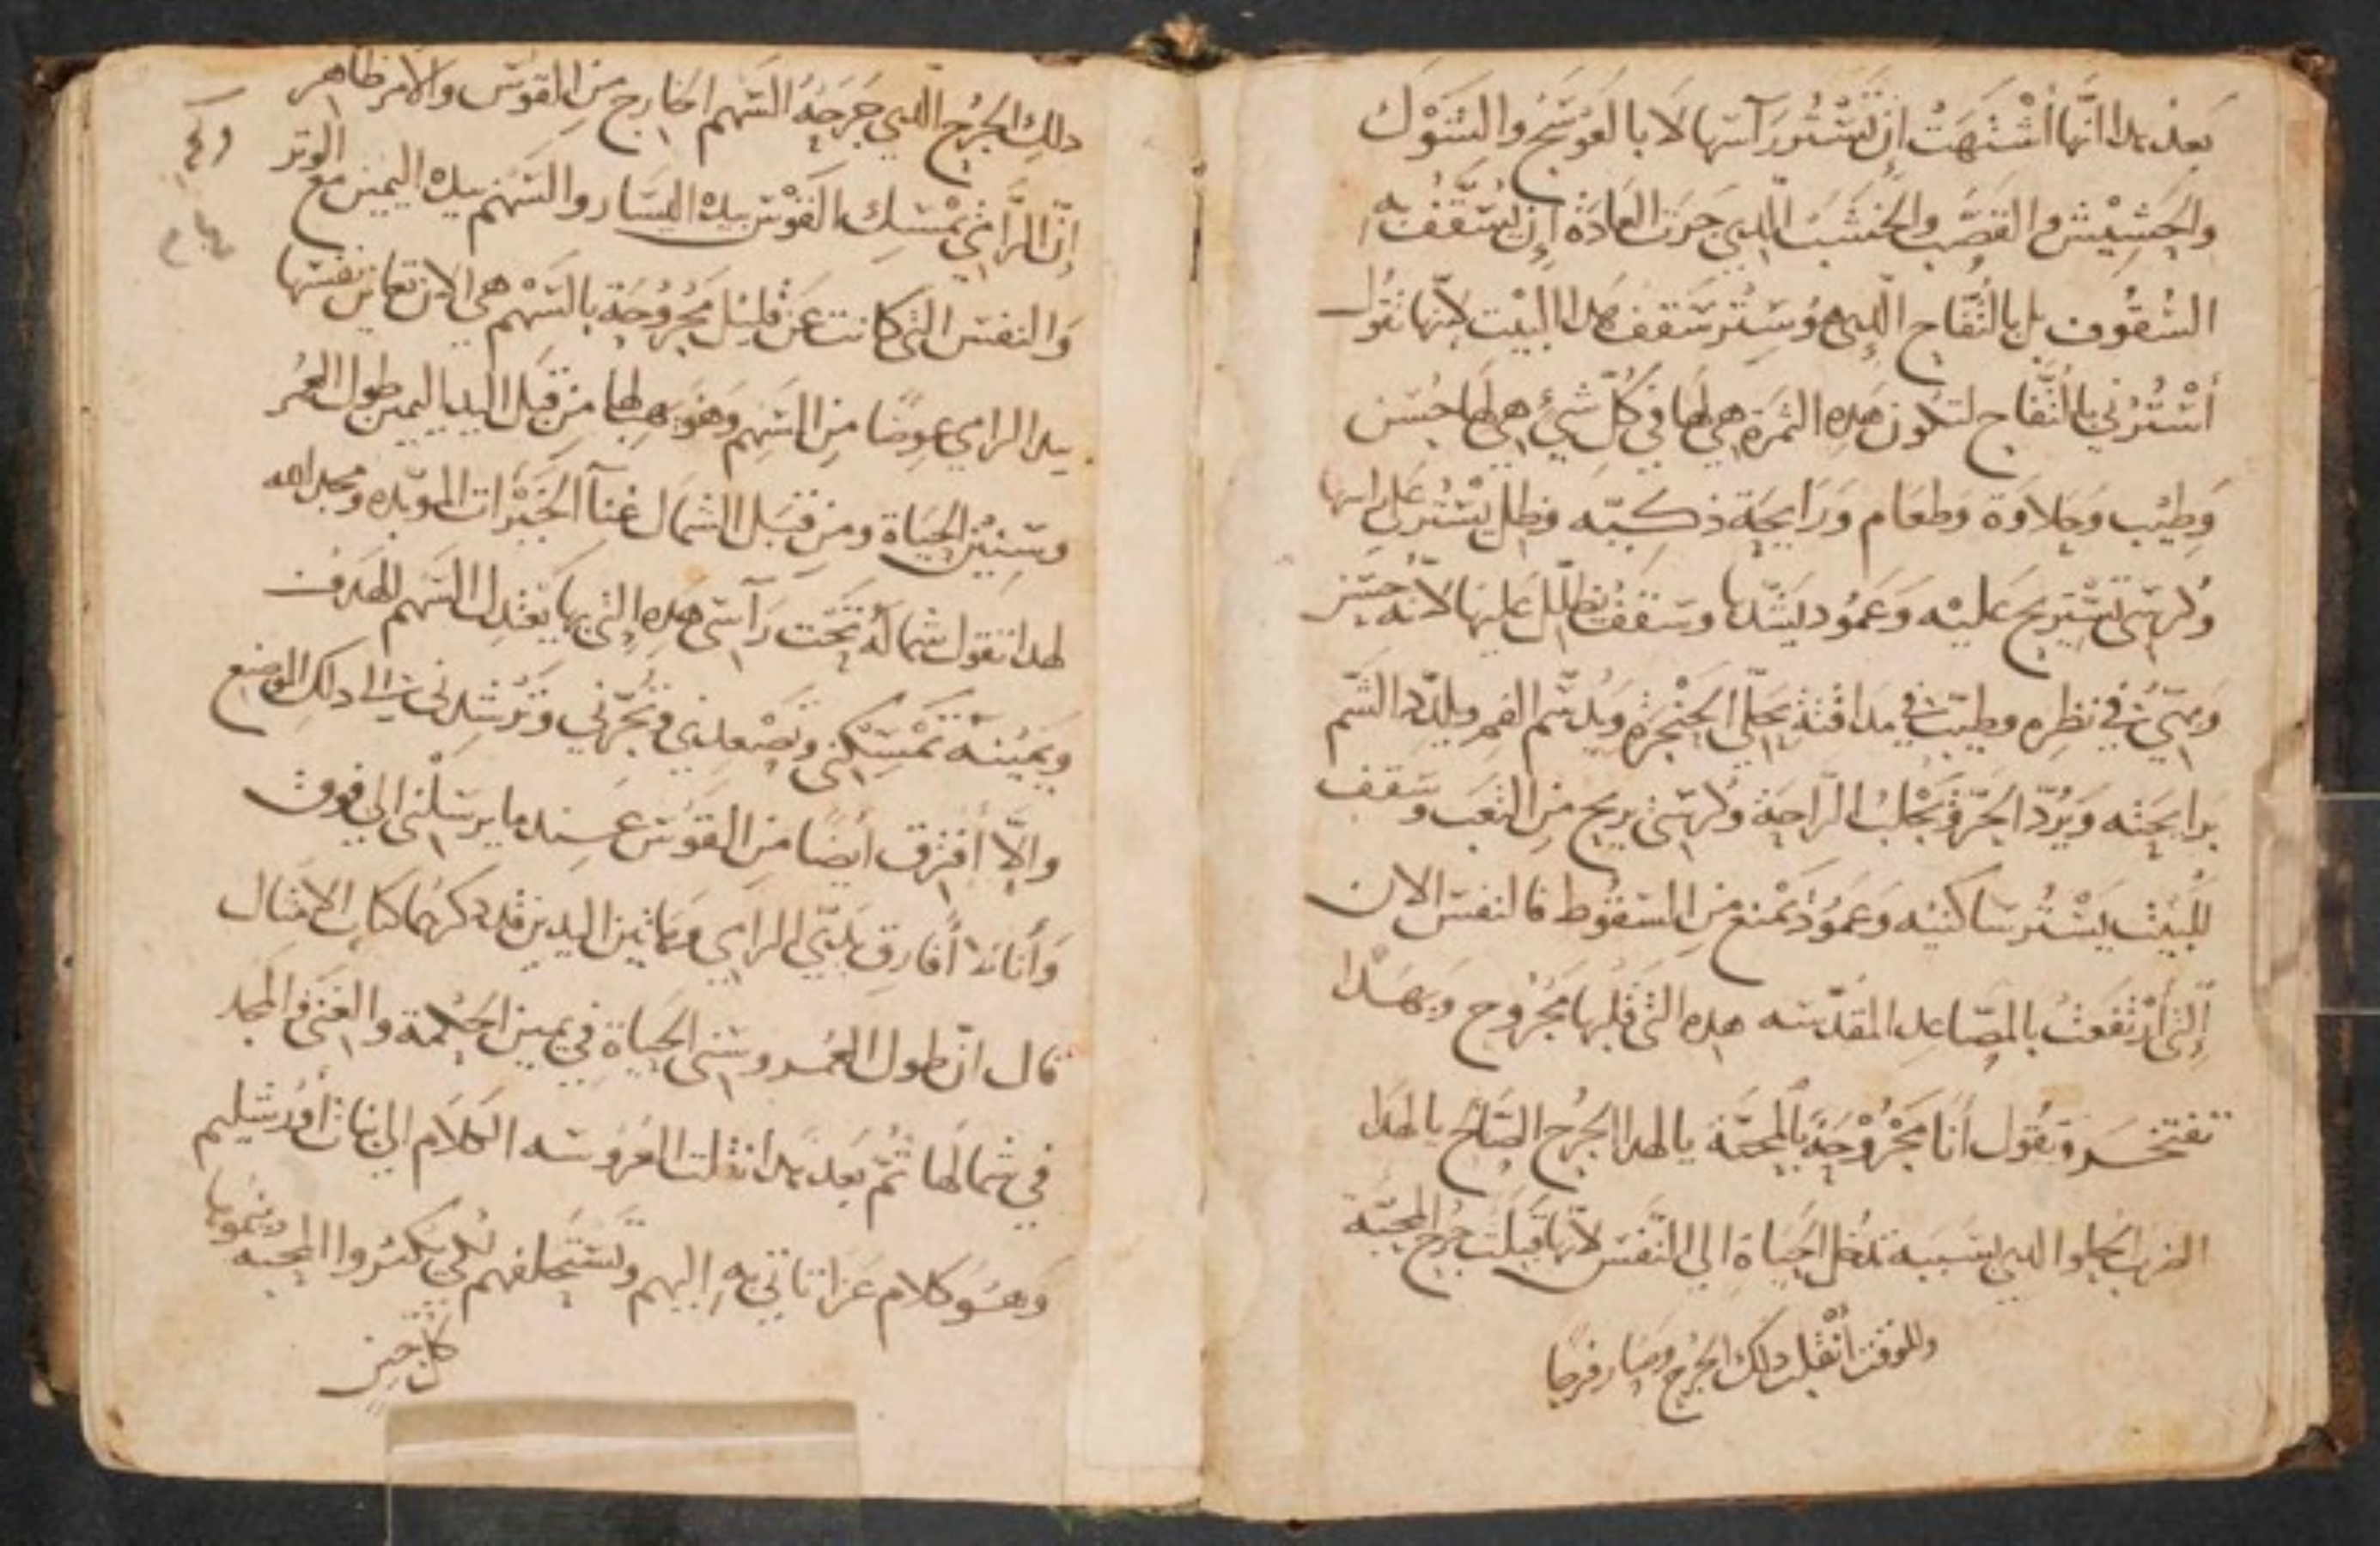 بعد هدا انّها أشْتهَتْ ان تَسْتُر رَآسَها لا بالعَوْسَج والشَوْك
والحَشِيْش والقصَب والخشَبُ الّلدي جرَت العَادَة إن تسَّقف به
السُقُوف بل بالتُفَّاح الّلدي هو سِتْر سَقف هدا البَيْت لانّها تقُول
أسْتُرُني بالتُّفّاح لتكون هَدِه الثمرَة هي لهَا في كُلّ شيْ هي لهَا حُسْن
وَطِيْب وَحلاوَة وَطعَام وَرَايحَة ذكيّه وظِل يَسْتُر على راسها
وكُرسّي تسْتريح عَليْه وَعَمُود يَشّدها وسَقفُ يظلّل عليها لانّه حَسَن
وَبهيّ في نظِره وطيّب في مداقته يحَلّي الحَنْجَرَة ويُدسّم الفم ويلدّد الشّم
برايحَته وَيَرُدّ الحَرّ وَيَجْلبُ الرّاحَة وكُرسّي يريح مِن التعَب وسَقف
للبَيْت يَسْتُر سَاكنيْه وَعَمُود يَمْنع مِن السَقوُط فالنفسَ الان
إلتي أرْتفعَتْ بالمصَاعِد المقدّسَه هده التي قلبُها مَجْرُوح وَبهَدا
تفتخر وتقُول أنَا مَجْرُوْحَة بالمحبَّة يا لهدا الجُرْح الصّالح يا لهدا
الضرب الحلو الدي بسَببه تدخُل الحيَاة إلي النّفسَ لانّها قبلَت جرْح المحبّة
وللوقت أنْقلب دلك الجُرْح وصَار فرحًا
دلك الجُرْح الّلدي جَرَحَهُ السَهم الخارج مِن القوس والأمر ظاهر
إنّ الرَّامي يمْسِك القَوْس بيدْه اليسَار والسَهْم بيدْه اليمين مع الوتر
وَالنفسَ التي كانت عَن قليْل مَجْرُوحَة بالسَهْم هي الان تعاين نفسَها
بيد الرامي عِوضًا مِن السَهم وَهوَ يهبها مِن قِبَل اليد اليمين طول العُمْر
وَسِنِيْن الحيَاة ومِن قِبَل الشمال غِنآ الخَيْرات الموبّده ومجد الله
لهدا تقول شمالُهُ تَحَت رَآسي هَدِه التي بها يَعْدِل السَهم للهدَف
وَيَميْنهُ تَمْسِكني وتصْعدني وتجُرّني وَترْشدني الي دلك الموضع
والاّ أفترق ايضًا مِن القَوْس عندما يرسَلْني الي فوق
وَأنا لا أفارق يدَيّ الرامي وهَاتين اليدين قد دكرَهُما كتاب الامثال
قال انّ طول العُمر وسني الحيَاة في يمين الحكمة والغنَي والمجد
في شمالهَا ثُمّ بَعد هدا نقلت العَروسَه الكلام الي بنات أورُشليم
وَهُوَ كلام عَزا تاتي به إليهم وَتسْتحلفهم لكي يكتروا المحبه وينموها
كل حين